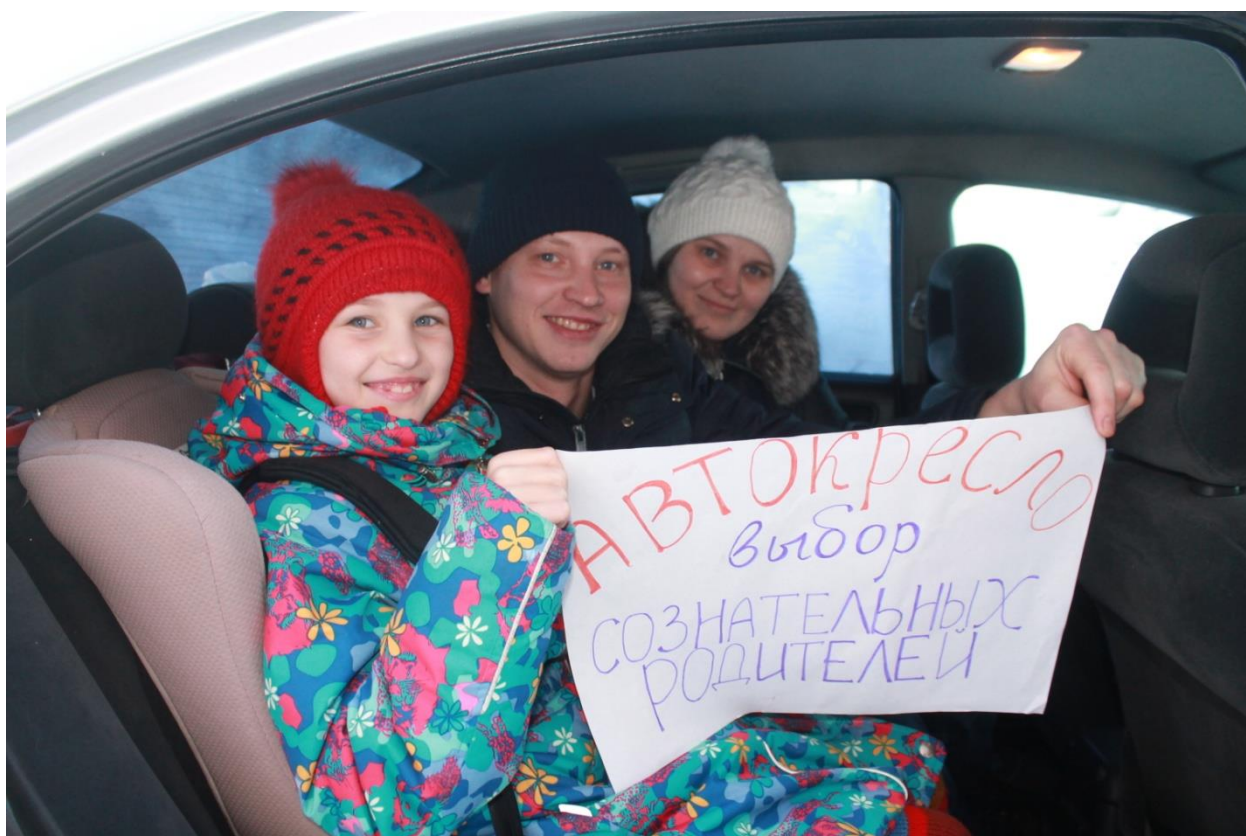 АВТОКРЕСЛО
выбор
СОЗНАТЕЛЬНЫХ
РОДИТЕЛЕЙ